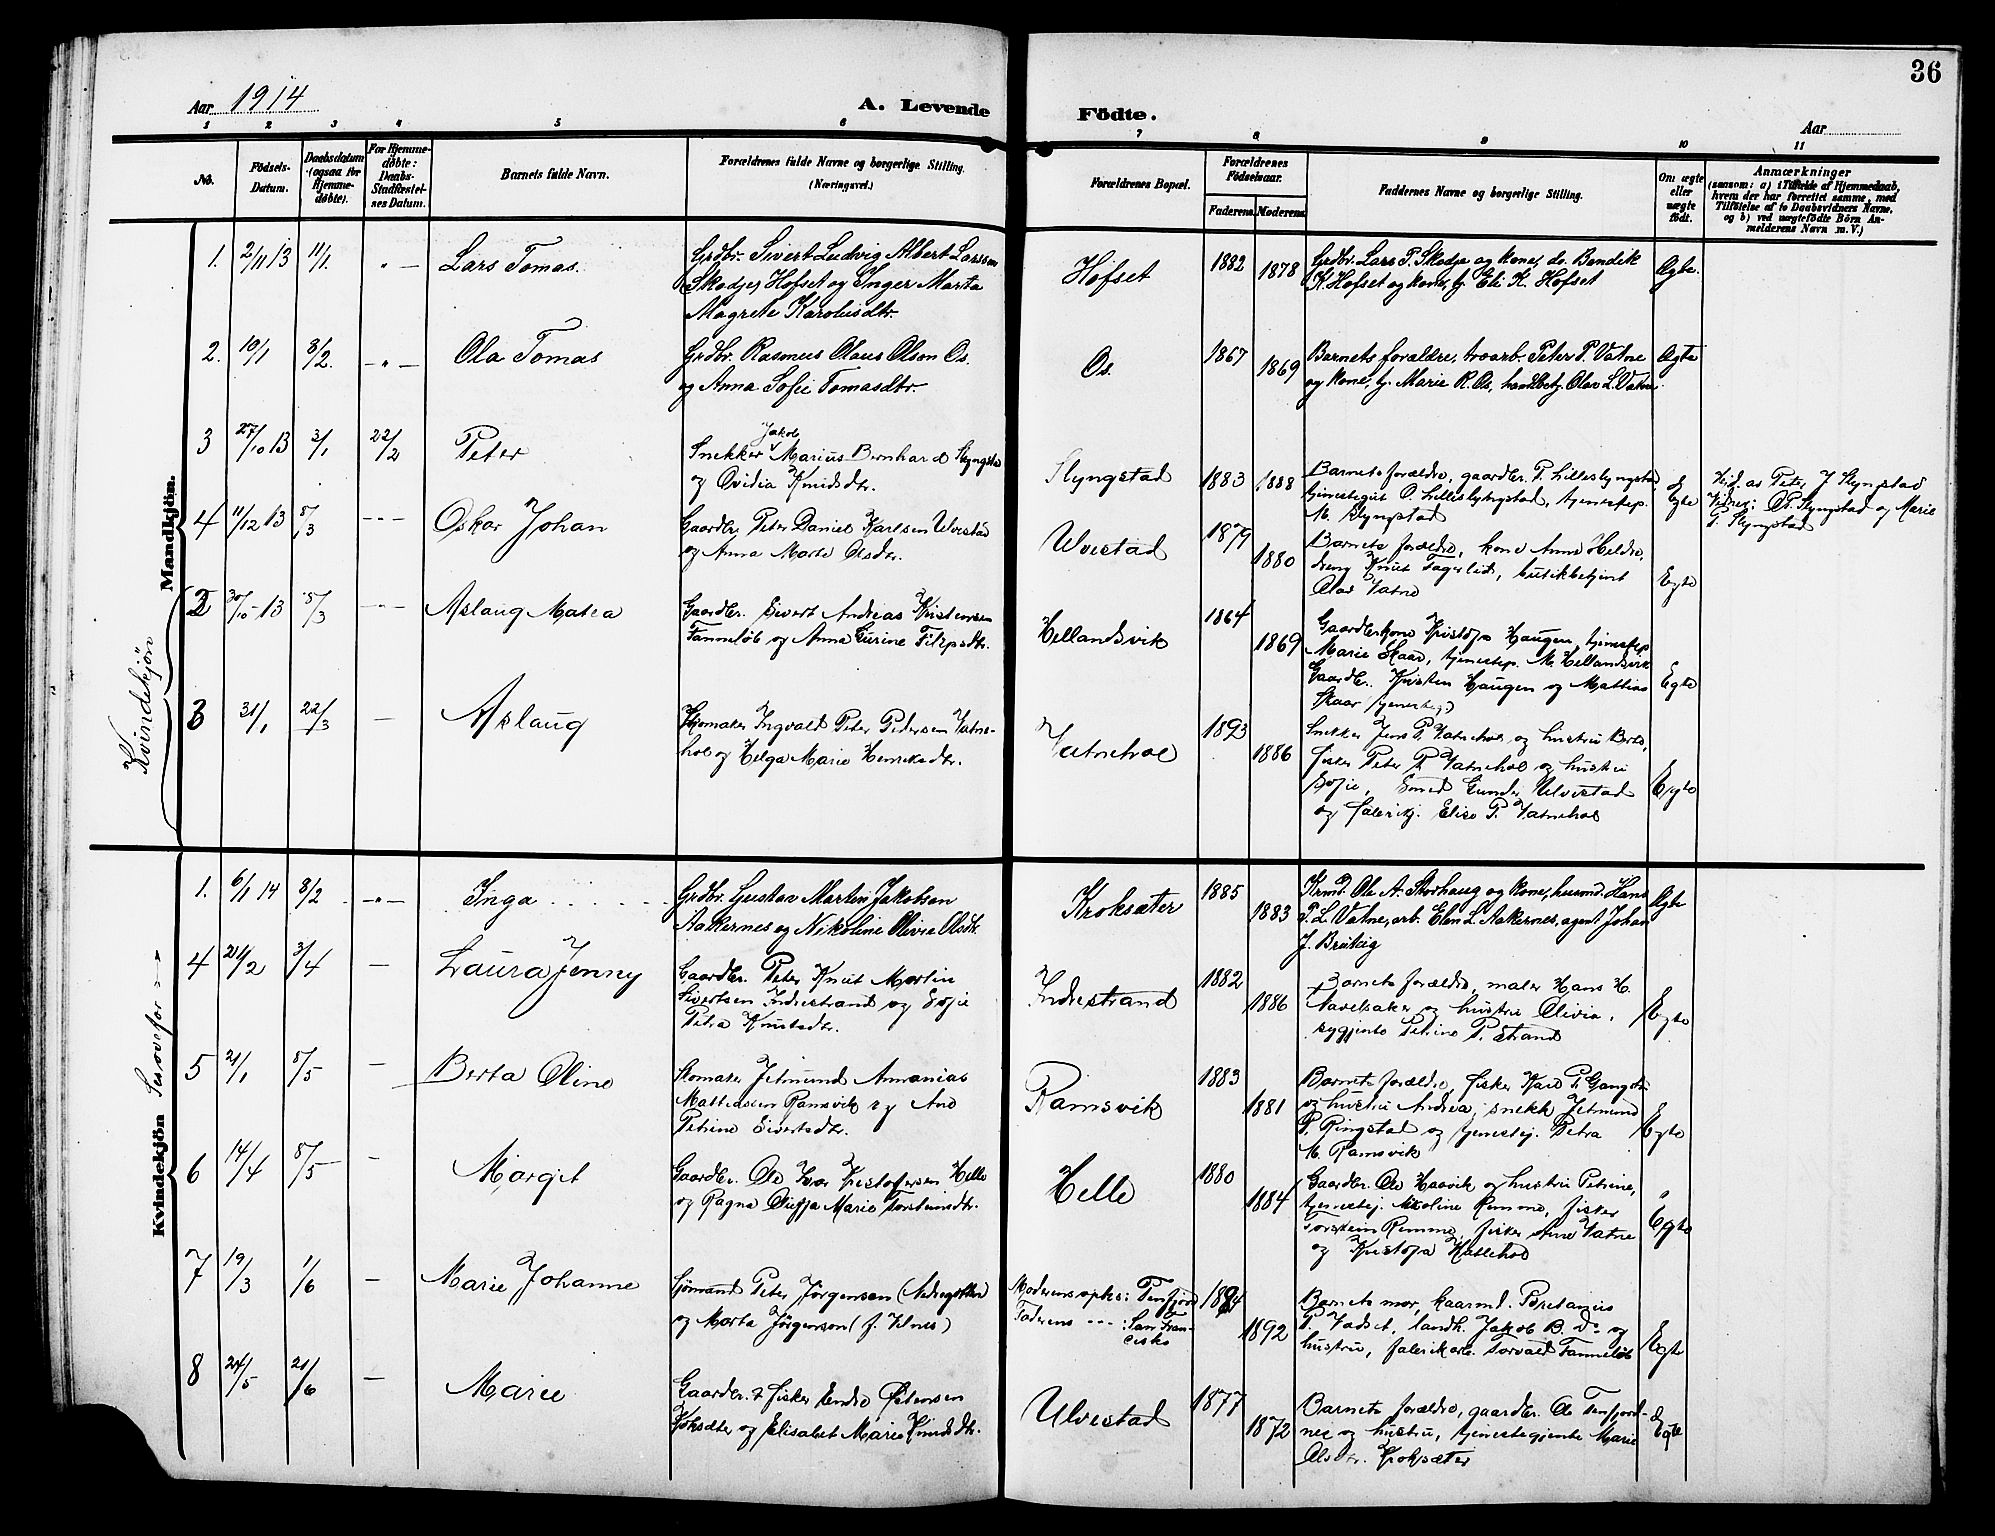 36
Aar 1914
A. Levende Födte.
Aar
1 2 3 4 5 6 7 8 9 10 11
No.
Födsels-Datum.
Daabsdatum (ogsaa for Hjemme-döbte).
For Hjemme-döbte: Daabs-Stadfæstel-ses Datum.
Barnets fulde Navn.
Forældrenes fulde Navne og borgerlige Stilling.
(Næringsvei.)
Forældrenes Bopæl.
Forældrenes Födselsaar.
Faderens Moderens
Faddernes Navne og borgerlige Stilling.
Om ægte eller uægte födt.
Anmærkninger
(saasom: a) i Tilfælde af Hjemmedaab,
hvem der har forrettet samme, med
Tilföielse af to Daabsvidners Navne,
og b) ved uægtefödte Börn An-
melderens Navn m. V.)
Mandkjön.
1. 2/11 13 11/1. " — Lars Tomas.
Grdbr. Sivert Ludvig Albert Larssen
Skodje, Hofset og Inger Marta
Magrete Karolusdtr.
Hofset 1882 1878
Grdbr. Lars P. Skodje og kone, do. Bendik
K. Hofset og kone, Eli K. Hofset
Ægte.
2. 19/1 8/2. — " — Ola Tomas
Grdbr. Rasmus Olaus Olsen Os.
og Anna Sofie Tomasdtr.
Os. 1867 1869
Barnets forældre, Peter P. Vatne
og kone, Marie R. Os, Olav L. Vatne
Ægte
3 27/10 13 3/1 22/2 Peter
Jakob
Snekker Marius Bernhard Slyngstad
og Ovidia Knudsdtr.
Slyngstad 1883 1888
Barnets forældre, gaardbr. P. Lilleslyngstad
tjenestegut O. Lilleslyngstad, tjenestep.
M. Slyngstad
Egte
av Peter J. Slyngstad
Vidner: O P. Slyngstad og Marie
P. Slyngstad
4 11/12 13 8/3 - - - Oskar Johan
Gaardbr. Peter Daniel Karlsen Ulvestad
og Anna Marte Olsdtr.
Ulvestad 1879 1880
Barnets forældre, kone Anne Heldre,
dreng Knut Fagerlid, butikbetjent
Olav Vatne
Egte
Kvindekjön
2 30/10-13 8/3 - - - Aslaug Matea
Gaardbr. Sivert Andreas Kristensen
Tammeløb og Anna Gurine Filipsdtr.
Hellandsvik 1864 1869
Gaardbrkone Kristofa Haugen, tjenestep.
Marie Skaar, tjenestep. M. Hellandsvik
Gaardbr. Kristen Haugen og Mattias
Skaar
Egte
3 31/1 22/3 — Aslaug
Skomaker Ingvald Peter Pedersen Vatne-
hol og Helga Marie Henriksdtr.
Vatnehol 1893 1886
Snekker Jens P. Vatnehol og hustru Berte,
fisker Peter P. Vatnehol og hustru
Sofie, Smed Gunder Ulvestad
og fabrikkj. Elise P. Vatnehol
Egte
Kvindekjön
1. 6/1 14 8/2 — " — Inga
Grdbr. Gustav Martin Jakobsen
Aakernes og Nikoline Olivie Olsdtr.
Kroksæter 1885 1883
Ole A. Storhaug og kone, Hans
P. L. Vatne, arb. Elen L. Aakernes, agent Johan
J. Breivig
Ægte
4 21/2 3/4 — Laura Jenny
Gaardbr. Peter Knut Martin
Sivertsen Indrestrand og Sofie
Petra Knutsdtr.
Indrestrand 1882 1886
Barnets forældre, maler Hans H.
Navelsaker og hustru Olivia,
sygjente Petrine P. Strand
Egte
5 21/1 8/5 — Berta Oline
Skomaker Jetmund Annanias
Mattiassen Ramsvik og Ane
Petrine Sivertsdtr.
Ramsvik 1883 1881
Barnets forældre, fisker
og hustru Andrea, snekk. Jetmund
P. Ringstad og tjenestepj. Petra
M. Ramsvik
Egte
6 14/4 8/5 - Margit
Gaardbr. Ole Ivar Kristofersen Helle
og Ragna Oluffa Marie Torsteinsdtr.
Helle 1880 1884
Gaardbr. Ole Haavik og hustru Petrine,
tjenestepj. Nikoline Remme, fisker
Torstein Remme, fisker Arne Vatne
og Kristofa Hattehol
Egte
7 19/3 1/6 — Marie Johanne
Sjömand Peter Jörgensen
og Marta Jörgensen (f. Ulnes)
Moderens ophs: Tenfjord
Faderens - - - : San Fran-
cisko
1884 1892
Barnets mor, kaarmd. Pøretanus
P. Vadset, landh. Jakob B. do og
hustru, Torvald Tammeløb
Egte
8 24/5 21/6 — Marie
Gaardbr. & fisker Endre Østensen
Kroksæter og Elisabet Marie Knudsdtr.
Ulvestad 1877 1872
Barnets forældre, gaardbr. Ole Tenfjord-
nes og hustru, tjenestegjente Marie
Olsdtr. Kroksæter
Egte